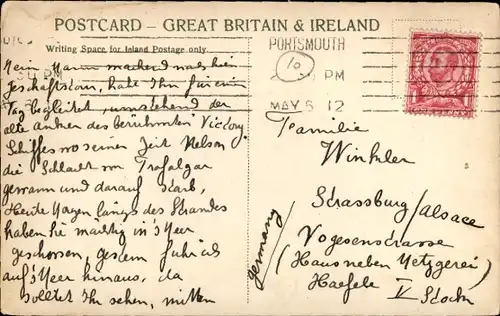 POSTCARD – GREAT BRITAIN & IRELAND
Writing Space for Inland Postage only.
PORTSMOUTH
10
PM
MAY 6 12
Mein Mann machend nach hier
Geschäftstour, habe Ihn für ein
Tag begleitet, umstehend der
alte Anker des berühmten Victory
Schiffes wo seiner Zeit Nelson
die Schlacht von Trafalgar
gewann und darauf starb,
Heute Morgen längs des Strandes
haben sie mächtig in's Meer
geschossen, gestern fuhr ich
auf's Meer hinaus, da
solltet Ihr sehen, mitten
Familie
Winkler
Strassburg/Alsace
Vogesenstrasse
(Haus neben Metzgerei)
Haefele V Stock
Germany